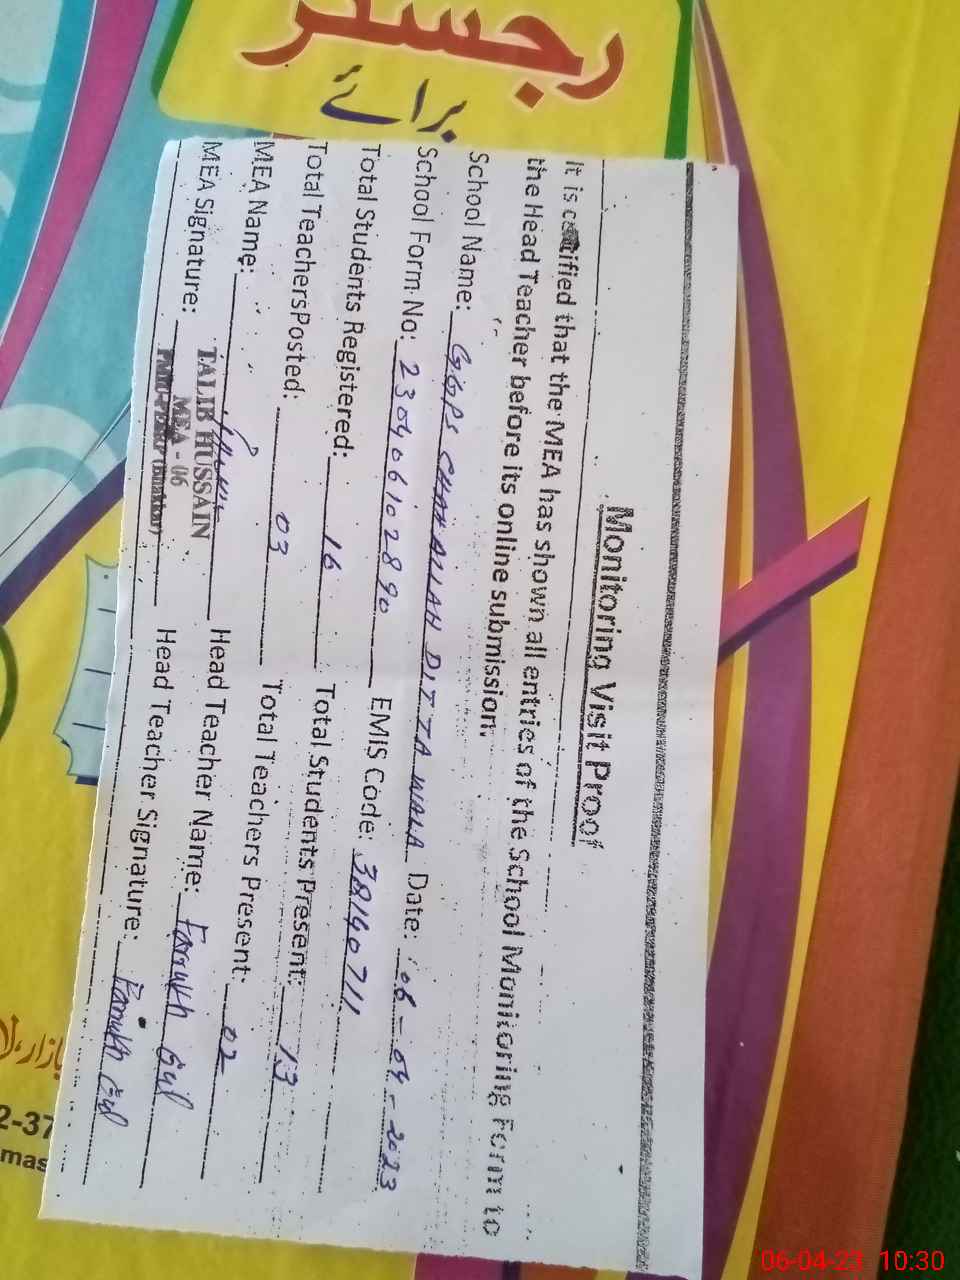 رجسٹر
برائے
Monitoring Visit Proof
It is certified that the MEA has shown all entries of the School Monitoring Form to
the Head Teacher before its online submission.
School Name: GGPS CHAH ALLAH DITTA WALA Date: 06-04-2023
School Form No: 230406102890 EMIS Code: 38140711
Total Students Registered: 16 Total Students Present: 13
Total TeachersPosted: 03 Total Teachers Present: 02
MEA Name: Head Teacher Name: Farrukh Gul
MEA Signature: Head Teacher Signature: Farrukh Gul
TALIB HUSSAIN
MEA - 06
(Bhakkar)
بازار، لا
2-37
mas
06-04-23 10:30